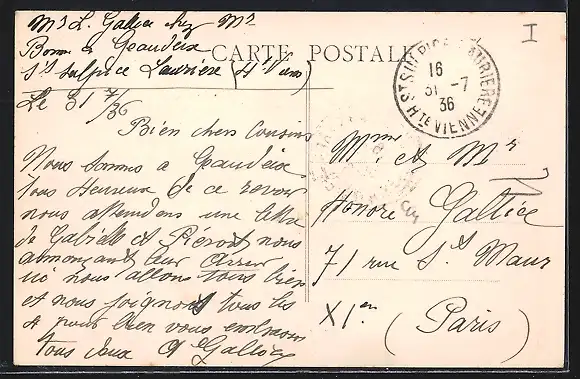 Mr L. Gallice chez Mr
Bonnu à Geaudeix
St Sulpice Laurière (Hte Vienne)
CARTE POSTALE
Le 31 7/36
ST SULPICE LAURIERE
16
31 -7
36
HTE VIENNE
I
Bien chers Cousins
Nous sommes à Geaudeix
tous Heureux de ce revoir
nous attendons une lettre
de Gabrielle et Pierrot nous
annonçant leur
ici nous allons tous bien
et nous joignons tous les
pour bien vous embrasser
tous deux Gallice
Mme et Mr
Honoré Gallice
71 rue St Maur
XIem
(Paris)